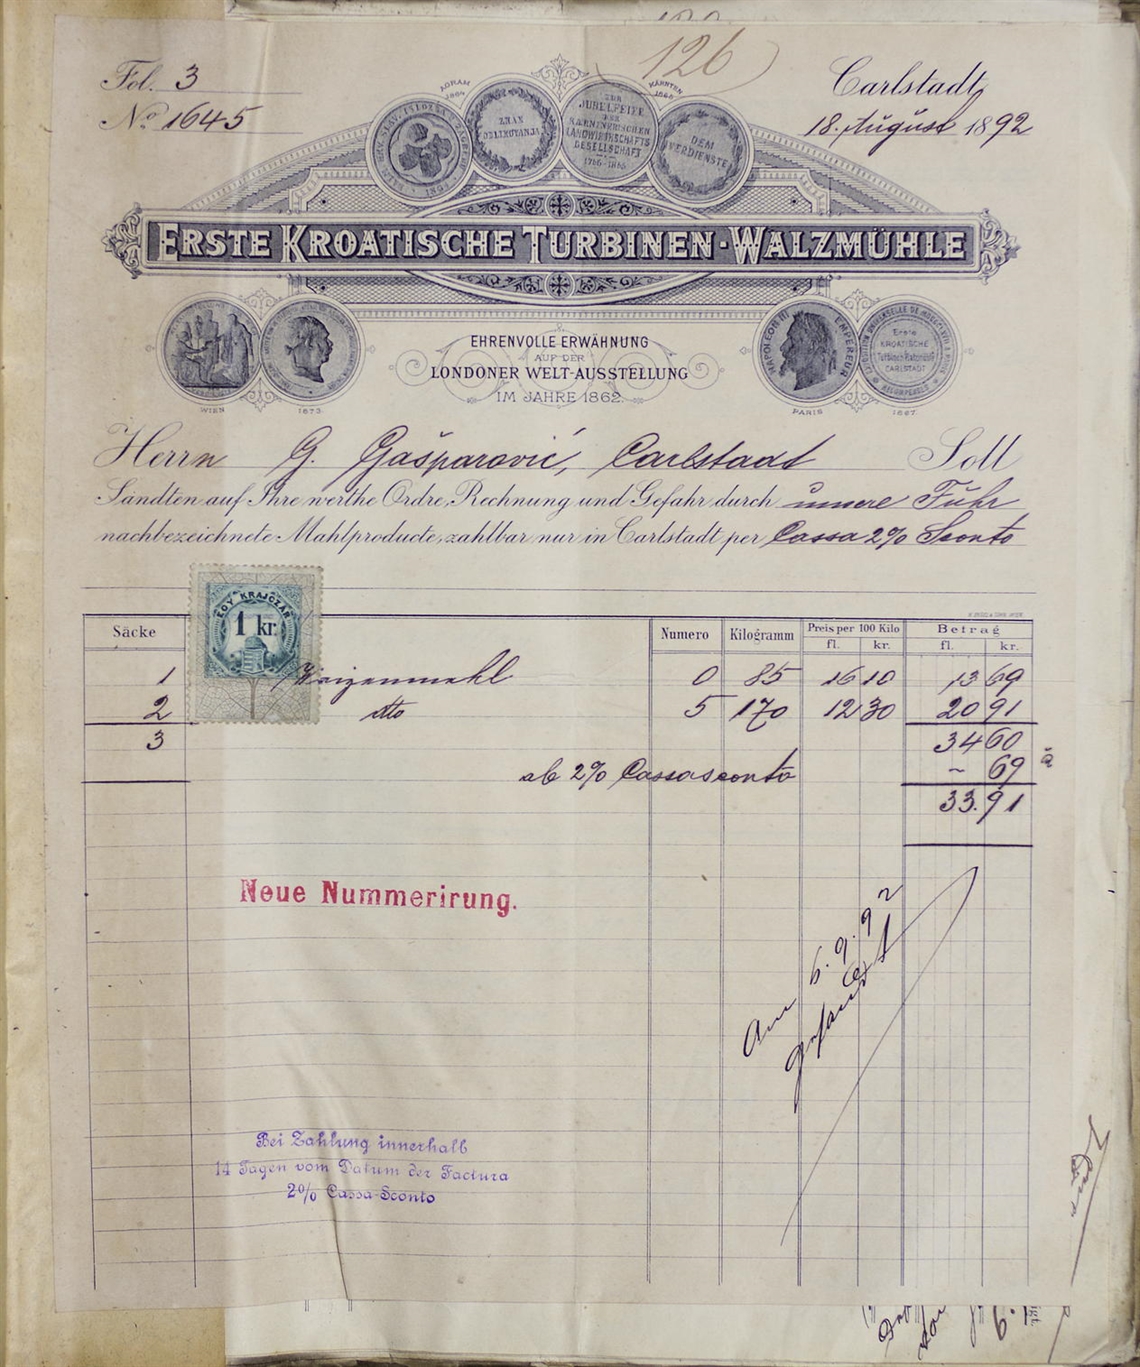 126
Fol. 3
Carlstadt,
No 1645
18. August 1892
AGRAM
1864
KÄRNTEN
1865
ZUR
JUBELFEIER
DER
KÄRNTNERISCHEN
LANDWIRTHSCHAFTS
GESELLSCHAFT
DEM
VERDIENSTE
ERSTE KROATISCHE TURBINEN-WALZMÜHLE
NAPOLEON III EMPEREUR
Erste
KROATISCHE
CARLSTADT
EHRENVOLLE ERWÄHNUNG
AUF DER
LONDONER WELT-AUSSTELLUNG
IM JAHRE 1862.
WIEN 1873.
PARIS 1867
Herrn G. Gašparović, Carlstadt Soll
Sandten auf Ihre werthe Ordre, Rechnung und Gefahr durch unsere Fuhr
nachbezeichnete Mahlproducte, zahlbar nur in Carlstadt per Cassa 2% Sconto
EGY KRAJCZÁR
1 kr.
Säcke Numero Kilogramm Preis per 100 Kilo Betrag
fl. kr. fl. kr.
1 Weizenmehl 0 85 16 10 13 69
2 dto 5 170 12 30 20 91
3 34 60
ab 2% Cassasconto - 69
33.91
Neue Nummerirung.
Am 6.9.92
Bei Zahlung innerhalb
14 Tagen vom Datum der Factura
2% Cassa-Sconto